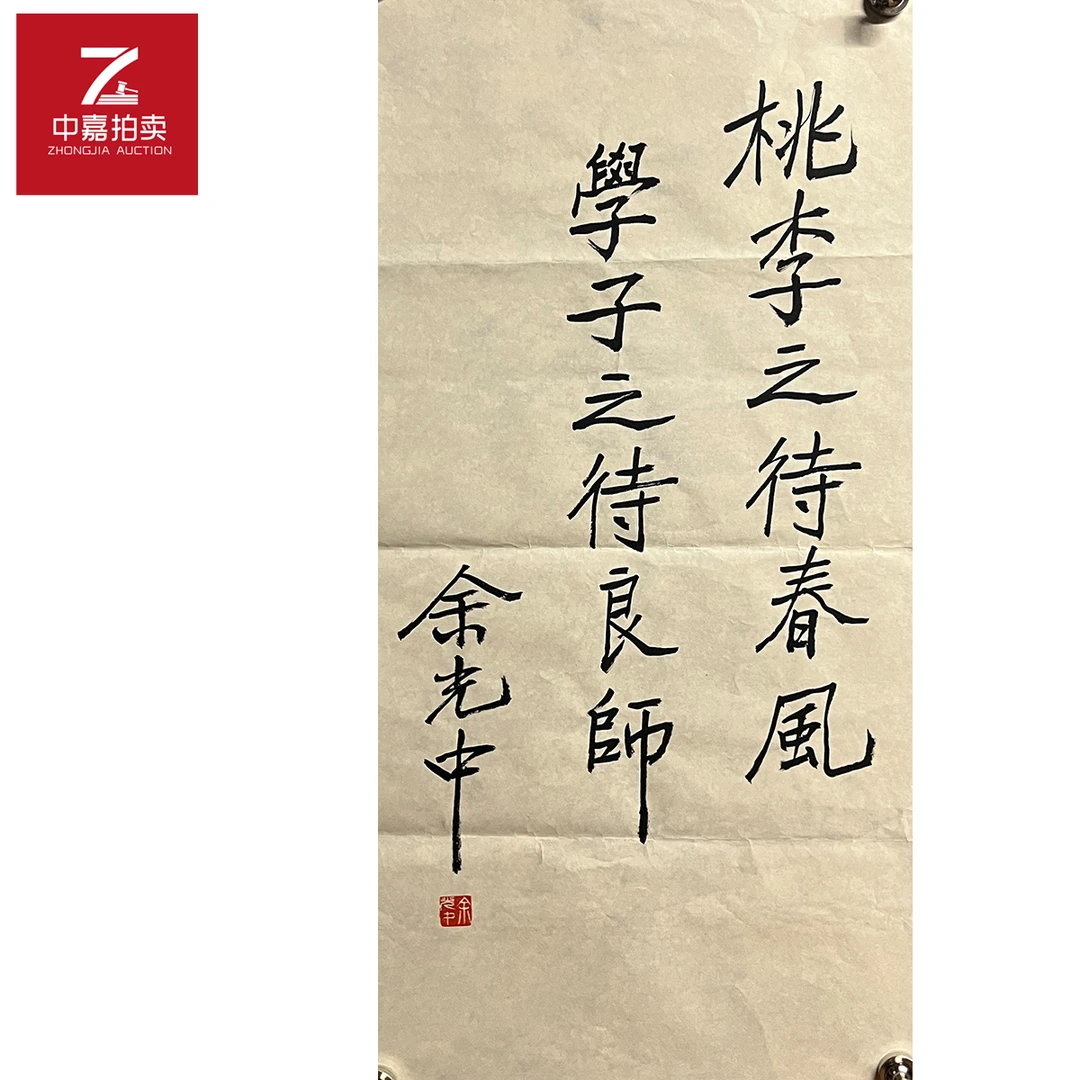 中嘉拍卖
ZHONGJIA AUCTION
桃李之待春風
學子之待良師
余光中
余光中